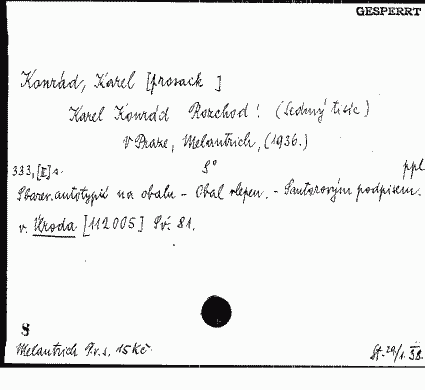 GESPERRT
Konrád, Karel [prosaik ]
Karel Konrád Rozchod! (Sedmý tisíc)
V Praze, Melantrich, (1936.)
333, [II] s. 8° ppl
S barev. autotypií na obalu - Obal vlepen. - S autorovým podpisem.
v. Úroda [112005] Sv. 81.
8
Melantrich P.v.s. 15 Kč. St. 29/1. 38.